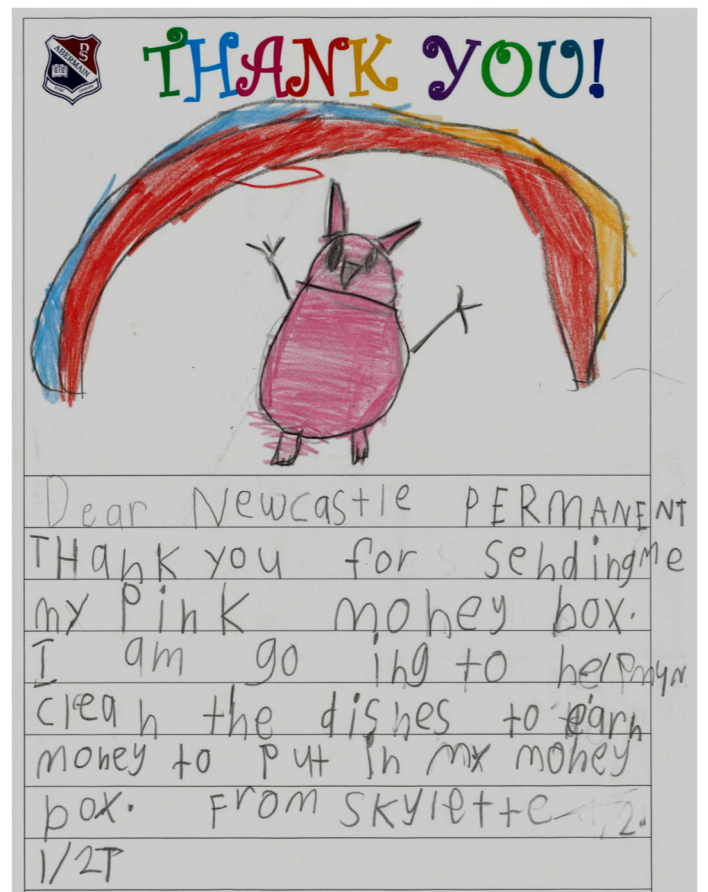 ABERMAIN
THANK YOU!
Dear Newcastle PERMANENT
THank you for sending me
my Pink money box.
I am go ing to help
clean the dishes to earn
money to put in my money
box. From SKylette
1/2P